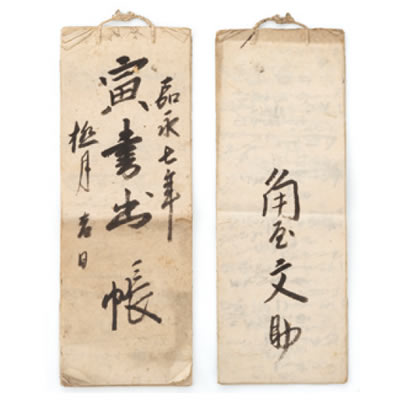 嘉永七年
寅書出帳
極月 吉日
角屋文助